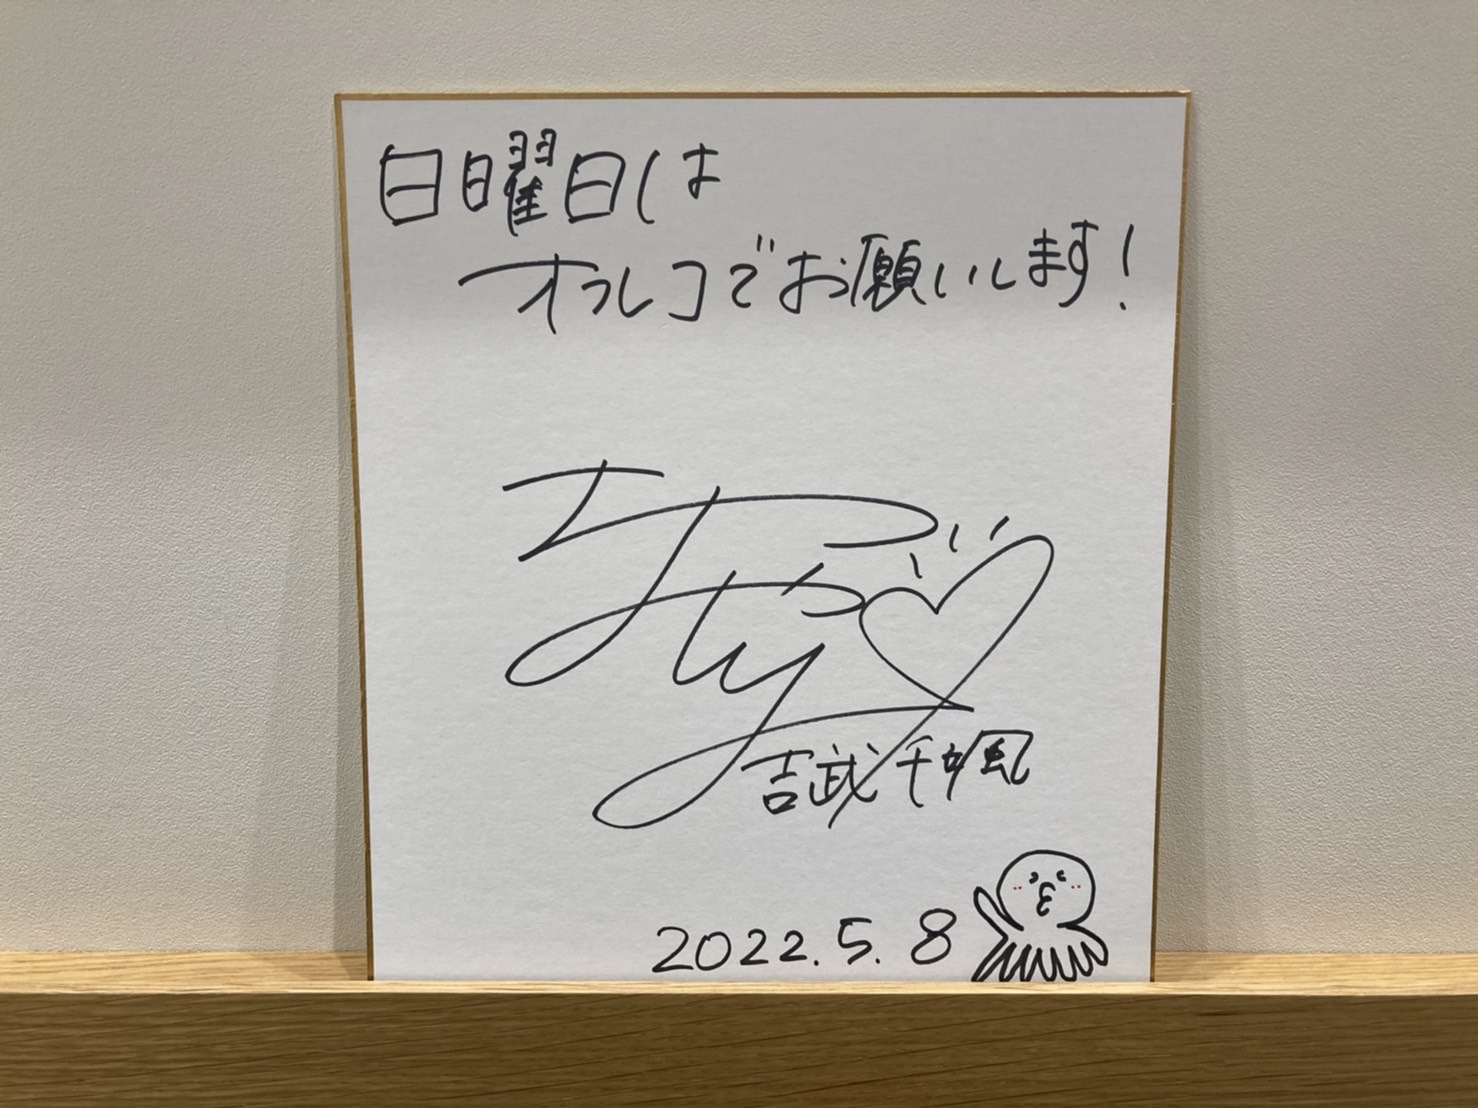 日曜日は
オフレコでお願いします!
吉武千颯
2022.5.8